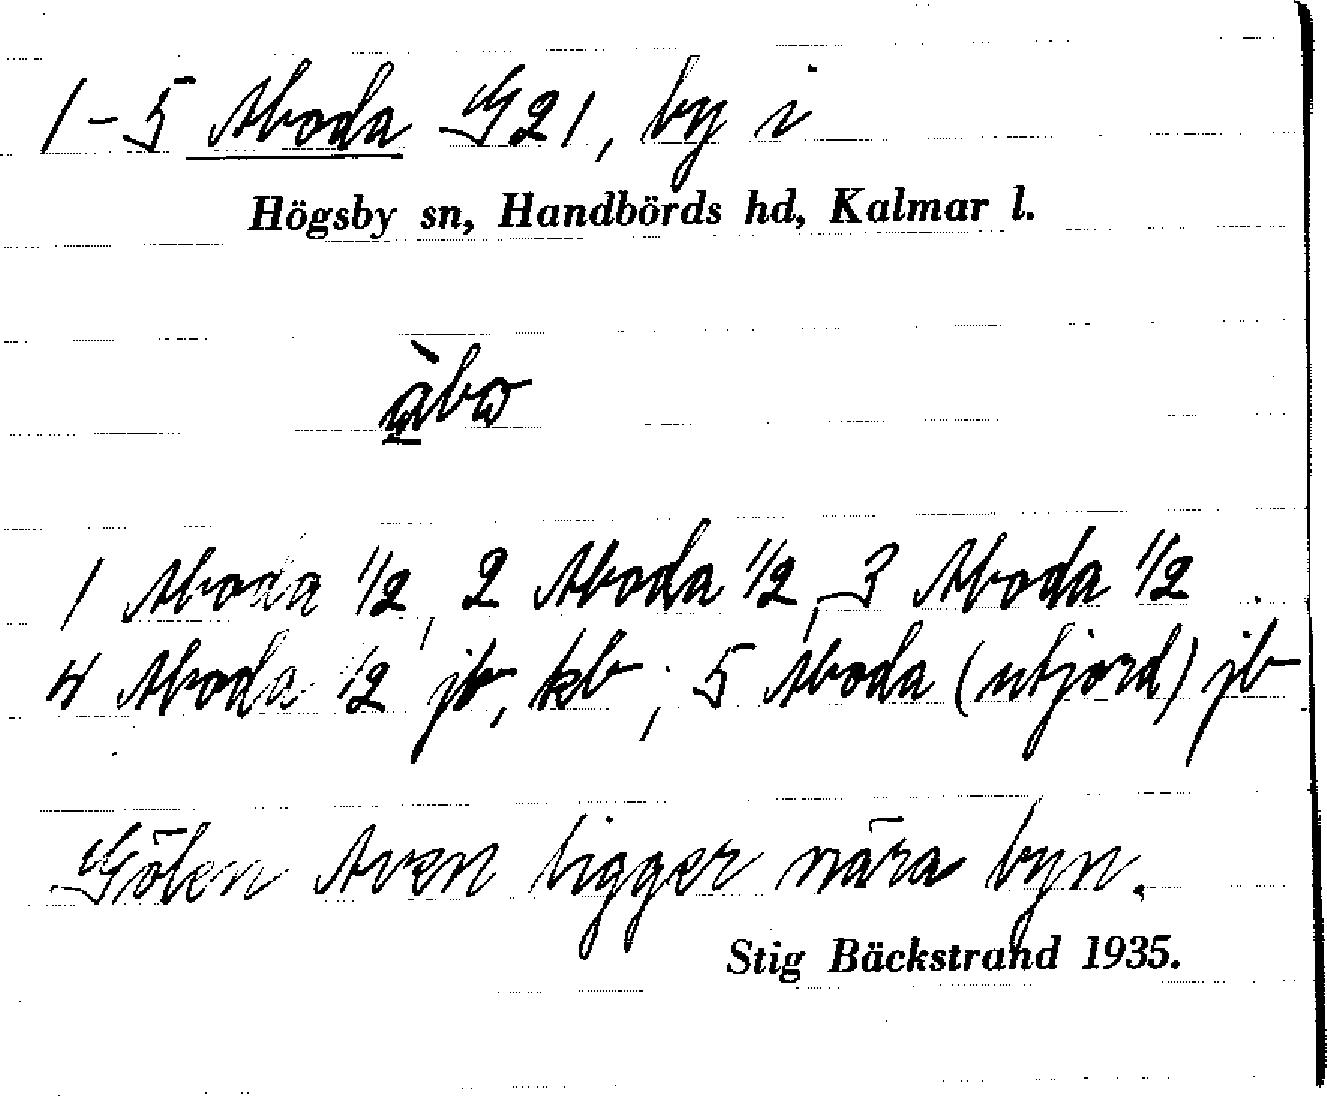 1-5 Aboda G21, by i
Högsby sn, Handbörds hd, Kalmar l.
àbo
1 Aboda 1/2, 2 Aboda 1/2, 3 Aboda 1/2
4 Aboda 1/2 jb, kb; 5 Aboda (utjord) jb
Gölen Aven ligger nära byn.
Stig Bäckstrand 1935.